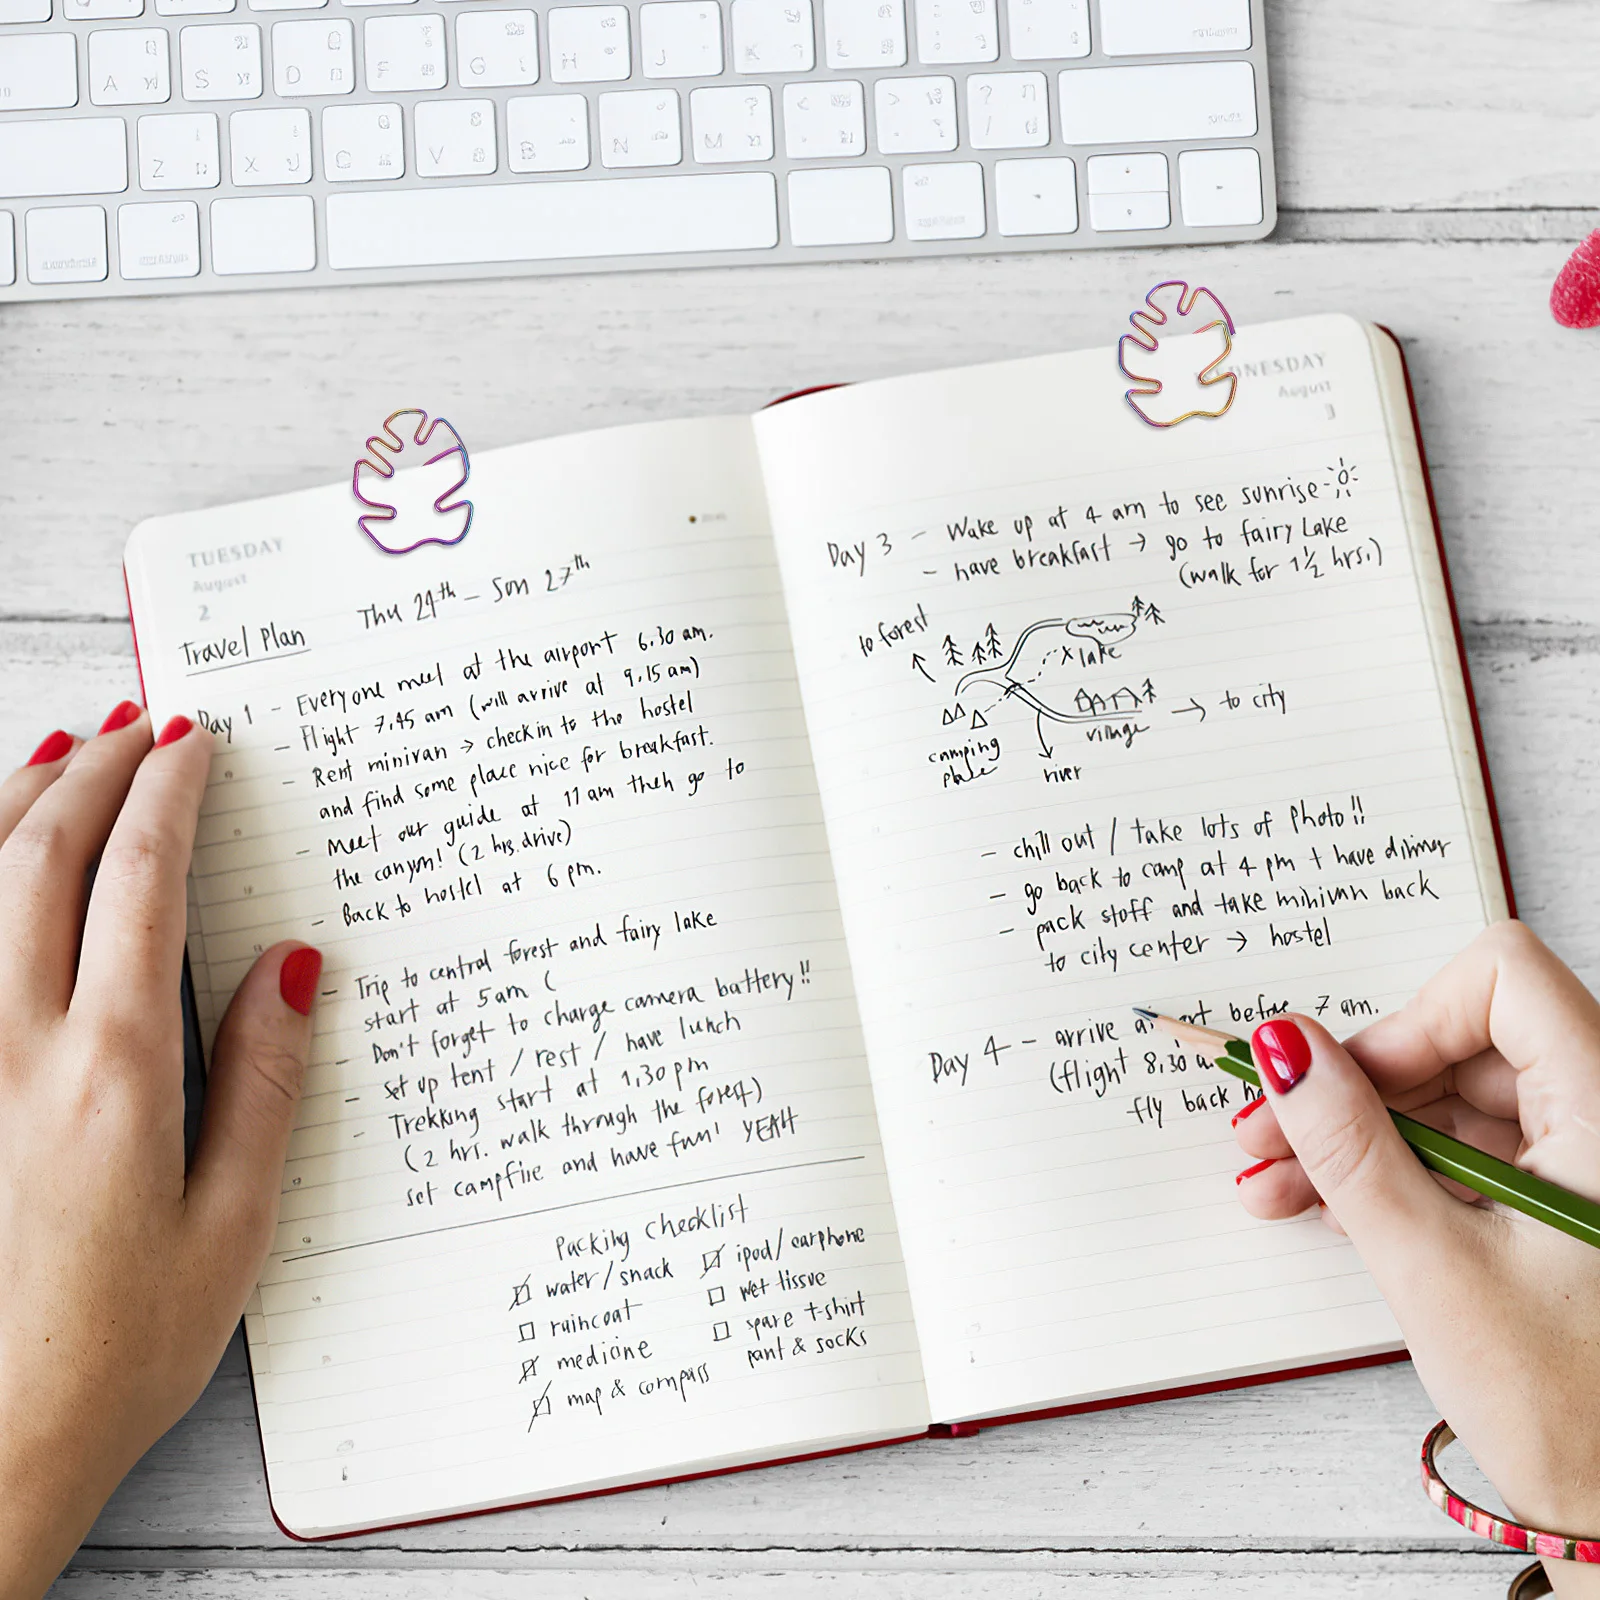 A
S
D
F
G
H
J
K
L
Z
X
C
V
B
N
M
TUESDAY
August
2
Thu 24th - Sun 27th
Travel Plan
Day 1 - Everyone meet at the airport 6.30 am.
- Flight 7.45 am (will arrive at 9.15 am)
- Rent minivan → check in to the hostel
and find some place nice for breakfast.
- Meet our guide at 11 am then go to
the canyon! (2 hrs. drive)
- Back to hostel at 6 pm.
- Trip to central forest and fairy lake
start at 5am (
- Don't forget to charge camera battery!!
- set up tent / rest / have lunch
- Trekking start at 1,30 pm
(2 hrs. walk through the forest)
set campfire and have fun! YEAH
Packing Checklist
water/snack
raincoat
medicine
map & compass
ipod/earphone
wet tissue
spare t-shirt
pant & socks
WEDNESDAY
August
3
Day 3 - Wake up at 4 am to see sunrise
- have breakfast → go to fairy Lake
(walk for 1½ hrs.)
to forest
lake
camping
place
village
→ to city
river
- chill out / take lots of photo!!
- go back to camp at 4 pm + have dinner
- pack stuff and take minivan back
to city center → hostel
Day 4 - arrive before 7 am.
(flight 8,30
fly back